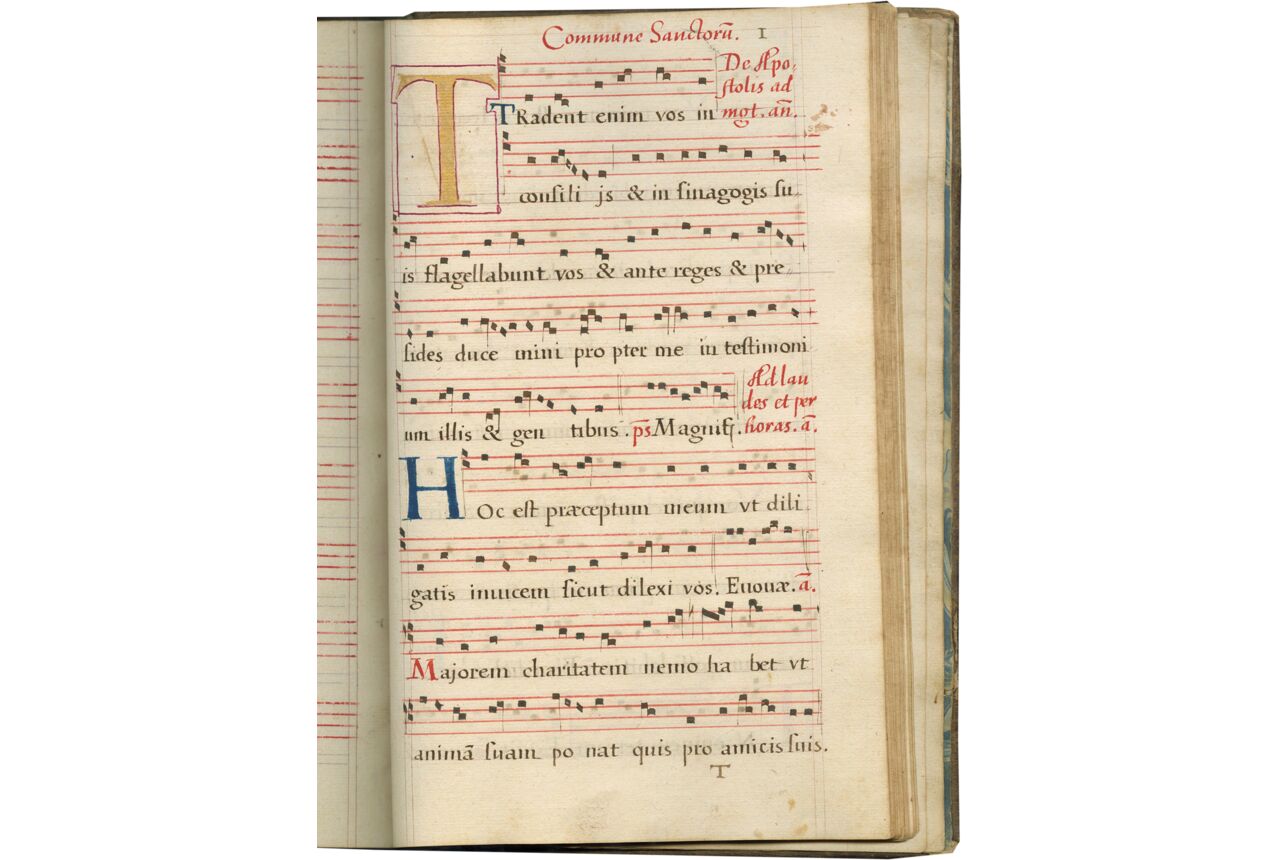 Commune Sanctorũ. 1
De Apo-
stolis ad
TRadent enim vos in mgt. añ.
consili js & in sinagogis su
is flagellabunt vos & ante reges & pre-
sides duce mini pro pter me in testimoni
Ad lau
des et per
um illis & gen tibus. ps Magnifi. horas. ã.
HOc est præceptum meum vt dili
gatis inuicem sicut dilexi vos. Euouæ. ã.
Majorem charitatem nemo ha bet vt
animã suam po nat quis pro amicis suis.
T